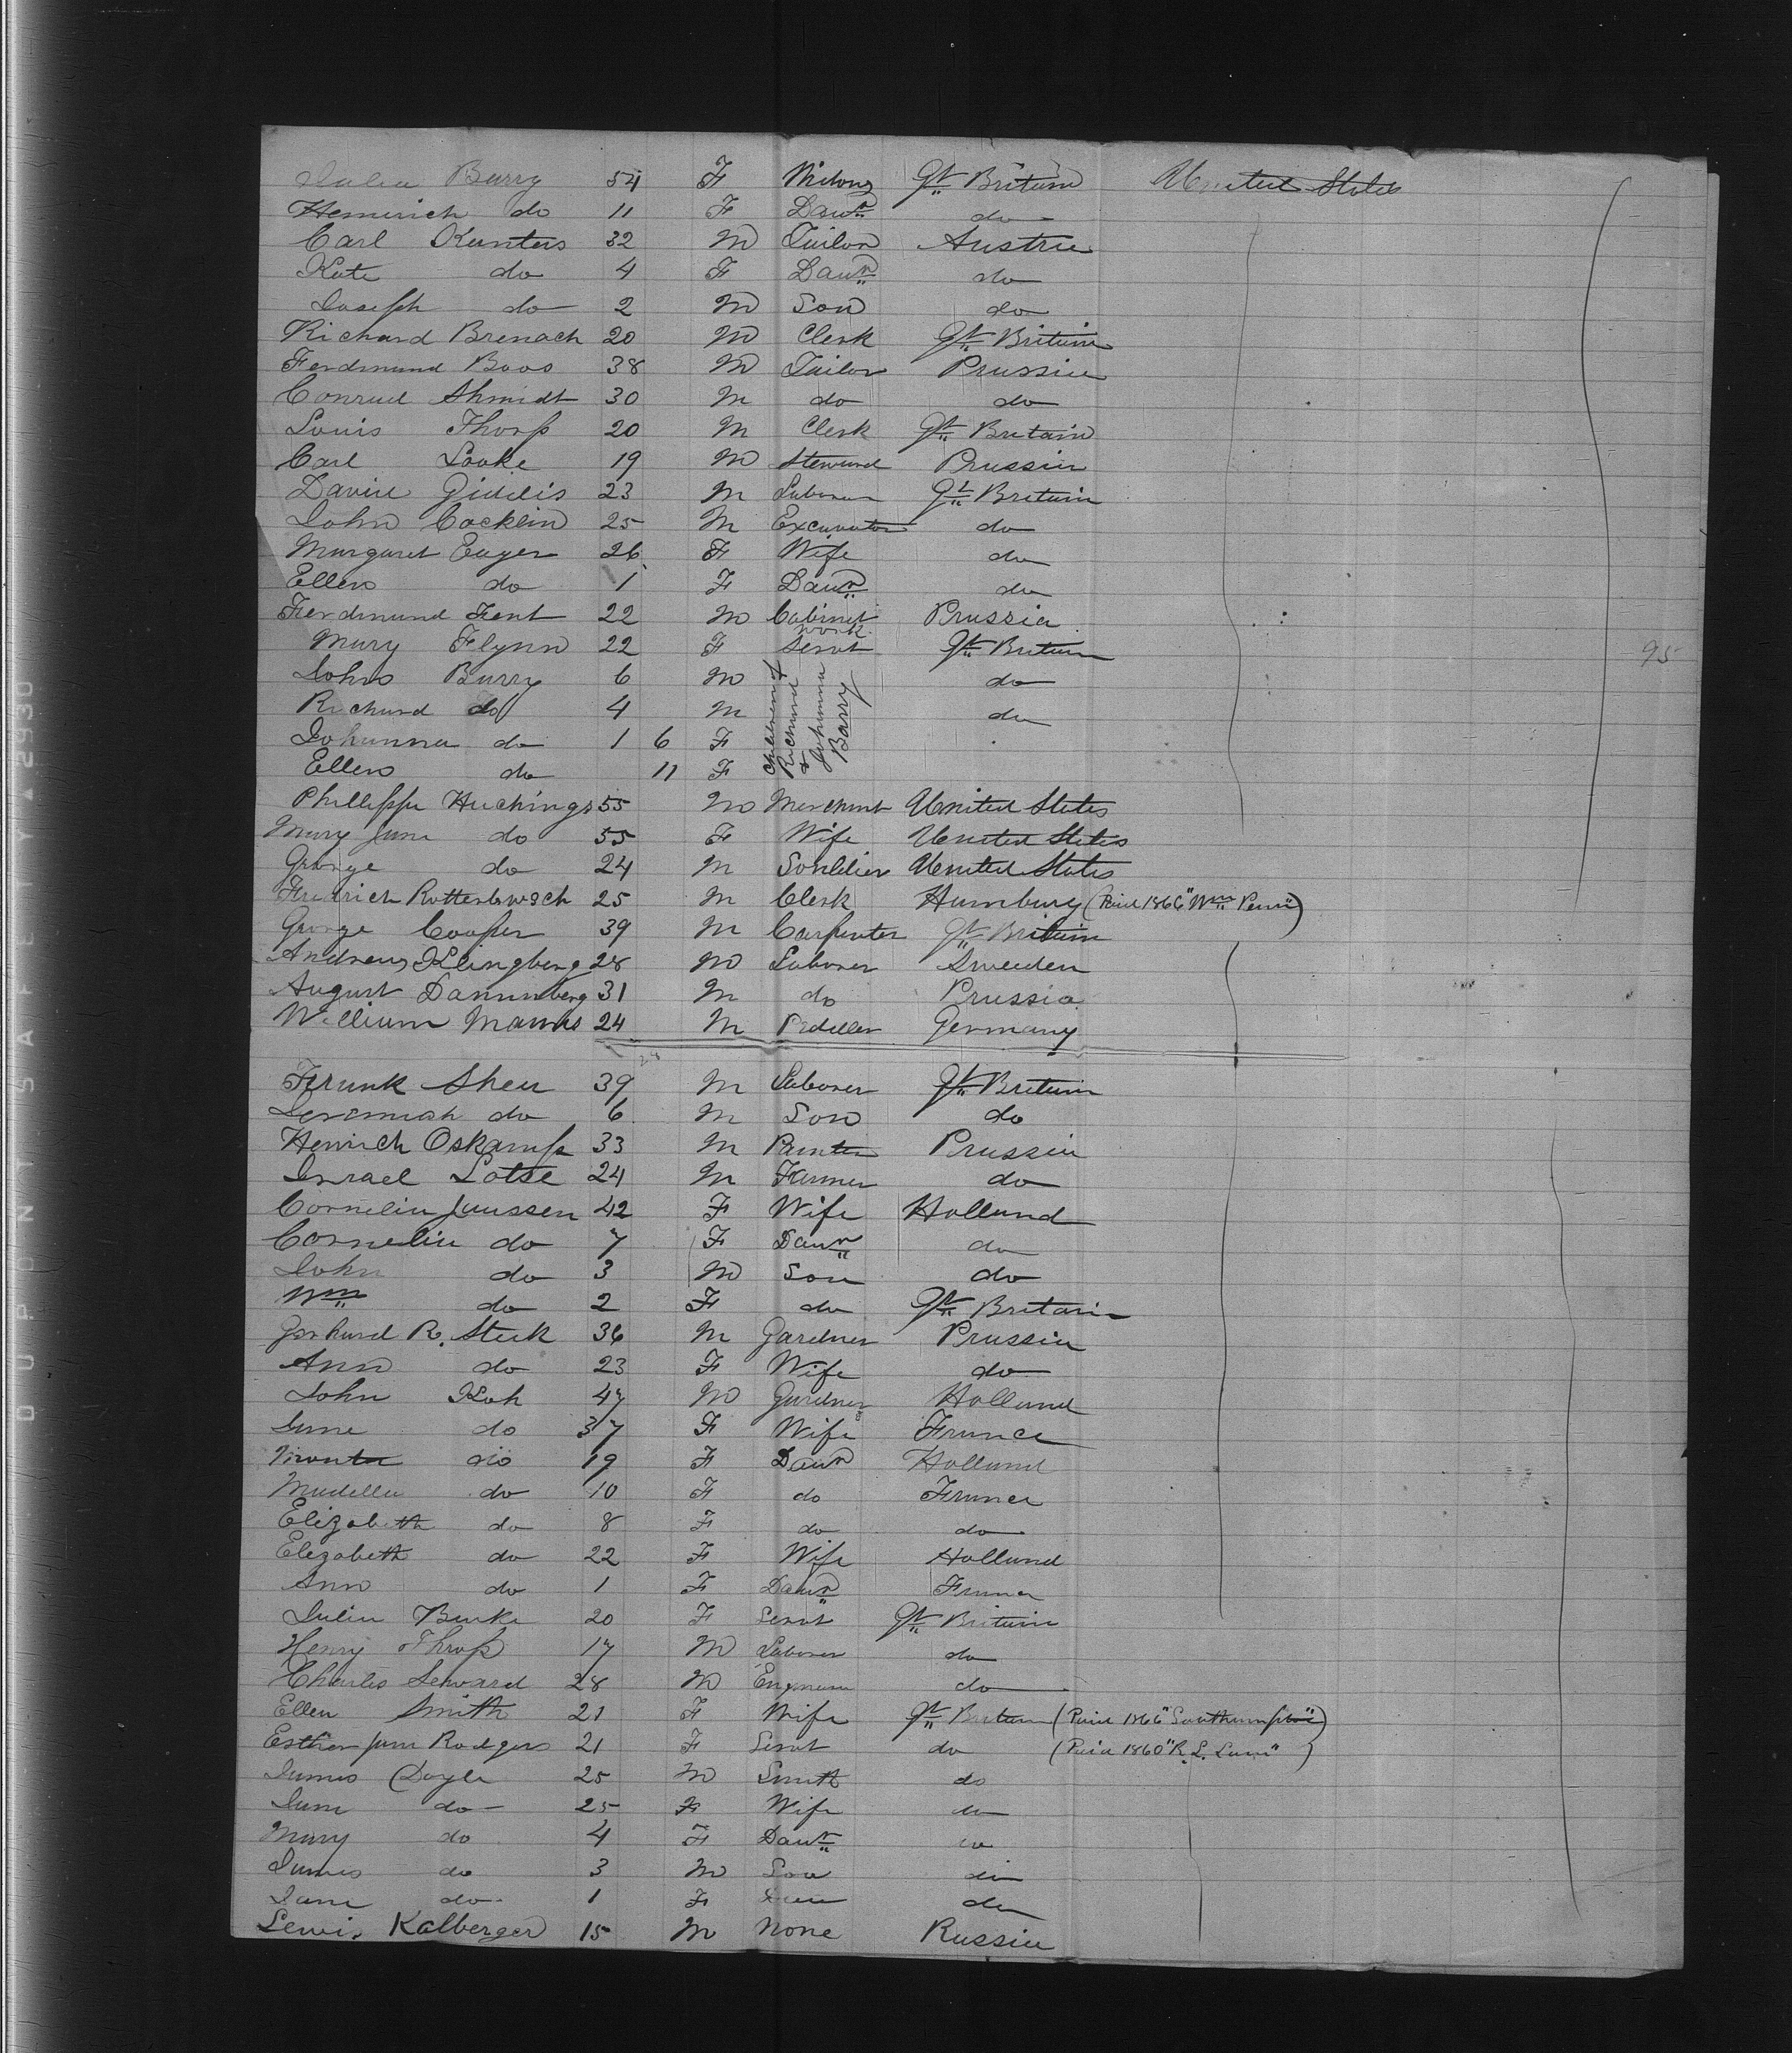 Julia Barry 54 F Widow Gt Britain United States
Hennrich do 11 F Daur do
Carl Kunters 32 M Tailor Austria
Kate do 4 F Daur do
Joseph do 2 M Son do
Richard Brenach 20 M Clerk Gt Britain
Ferdinand Boos 38 M Tailor Prussia
Conrad Shmidt 30 M do do
Louis Thorp 20 M Clerk Gt Britain
Carl Looke 19 M Steward Prussia
David Giddis 23 M Laborer Gt Britain
John Cocklin 25 M Excavator do
Margaret Eager 26 F Wife do
Ellen do 1 F Daur do
Ferdinand Fent 22 M Cabinet work Prussia
Mary Flynn 22 F Servt Gt Britain
John Barry 6 M Children of Richard & Johanna Barry do
Richard do 4 M do
Johanna do 1 6 F
Ellen do 11 F
Phillippe Huchings 55 M Merchant United States
Mary Jane do 55 F Wife United States
George do 24 M Souldier United States
Fredrich 25 M Clerk Hamburg (Paid 1866 "Wm Penn")
George Cooper 39 M Carpenter Gt Britain
Andreas Klingberg 28 M Laborer Sweeden
August Dannenberg 31 M do Prussia
William Manns 24 M Pedller Germany
Frank Shea 39 M Laborer Gt Britain
Jeremiah do 6 M Son do
Henrich Oskamp 33 M Painter Prussia
Israel Lotse 24 M Farmer do
Cornelia Janssen 42 F Wife Holland
Cornelia do 7 F Daur do
John do 3 M Son do
Wm do 2 F do Gt Britain
Gerhard R. Steck 36 M Gardner Prussia
Ann do 23 F Wife do
John Kok 47 M Gardner Holland
Jane do 37 F Wife France
do 19 F Daur Holland
Madella do 10 F do France
Elizabeth do 8 F do do
Elezabeth do 22 F Wife Holland
Ann do 1 F Daur France
Julia Burke 20 F Servt Gt Britain
Henry Throp 17 M Laborer do
Charles Seward 28 M Engineer do
Ellen Smith 21 F Wife Gt Britain (Paid 1866 "Southampton")
Esther Jane Rodgers 21 F Servt do (Paid 1860 "R. L. Lane")
James Doyle 25 M Smith do
Jane do 25 F Wife do
Mary do 4 F Daur do
James do 3 M Son do
Jane do 1 F Daur do
Lewis Kalberger 15 M None Russia
95
DUPONT SAFETY